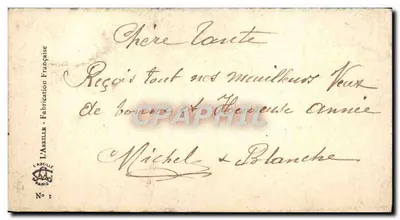 Chère Tante
Reçois tout nos meuilleurs Veux
de bonne & Hereuse année
Michel & Blanche
L'ABEILLE - Fabrication Française
N° 1
CPAPHIL